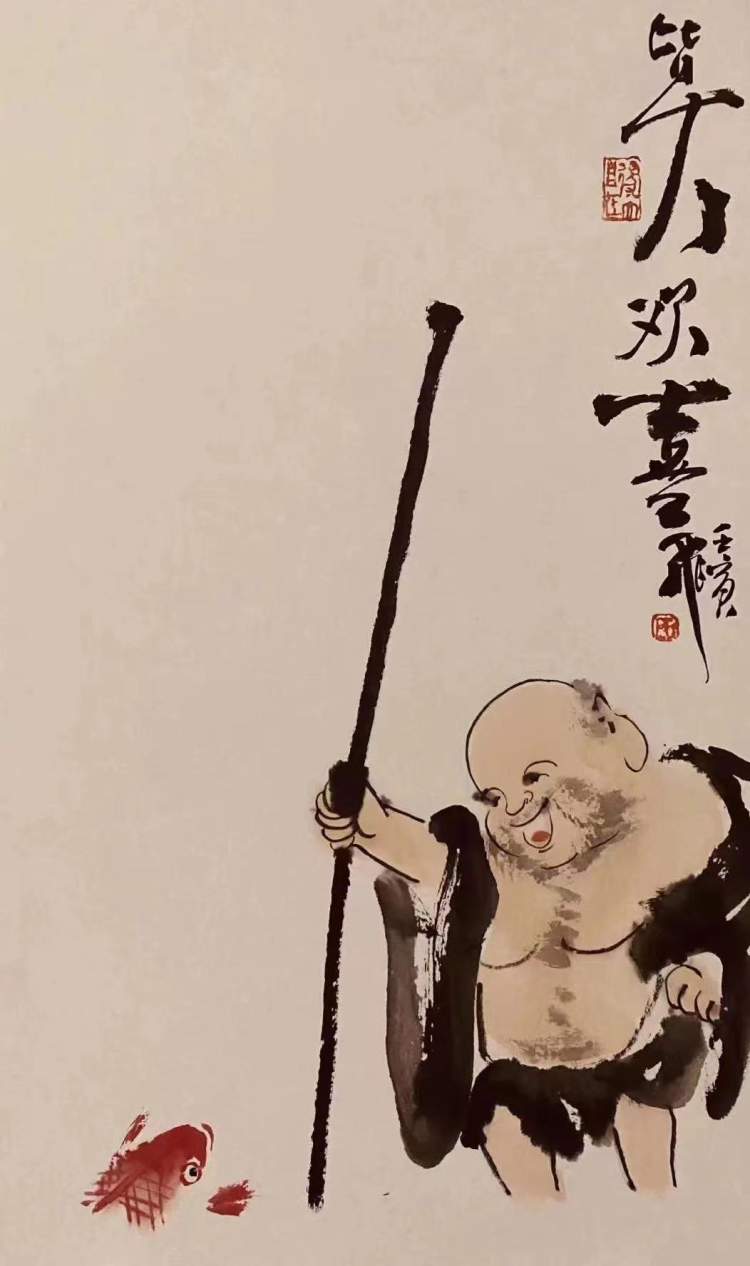 皆大欢喜
壬寅